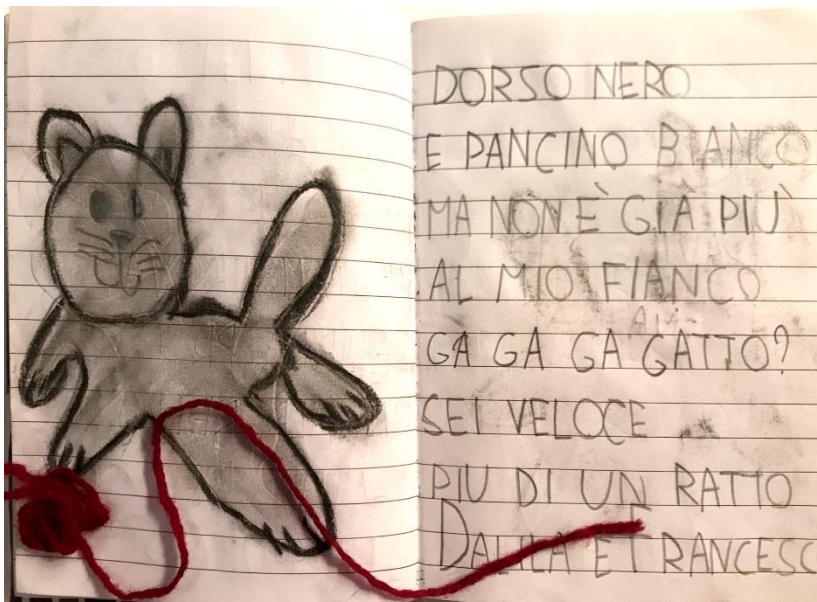 DORSO NERO
E PANCINO BIANCO
MA NON È GIÀ PIÙ
AL MIO FIANCO
GA GA GA GATTO?
SEI VELOCE
PIU DI UN RATTO
DALILA E FRANCESC